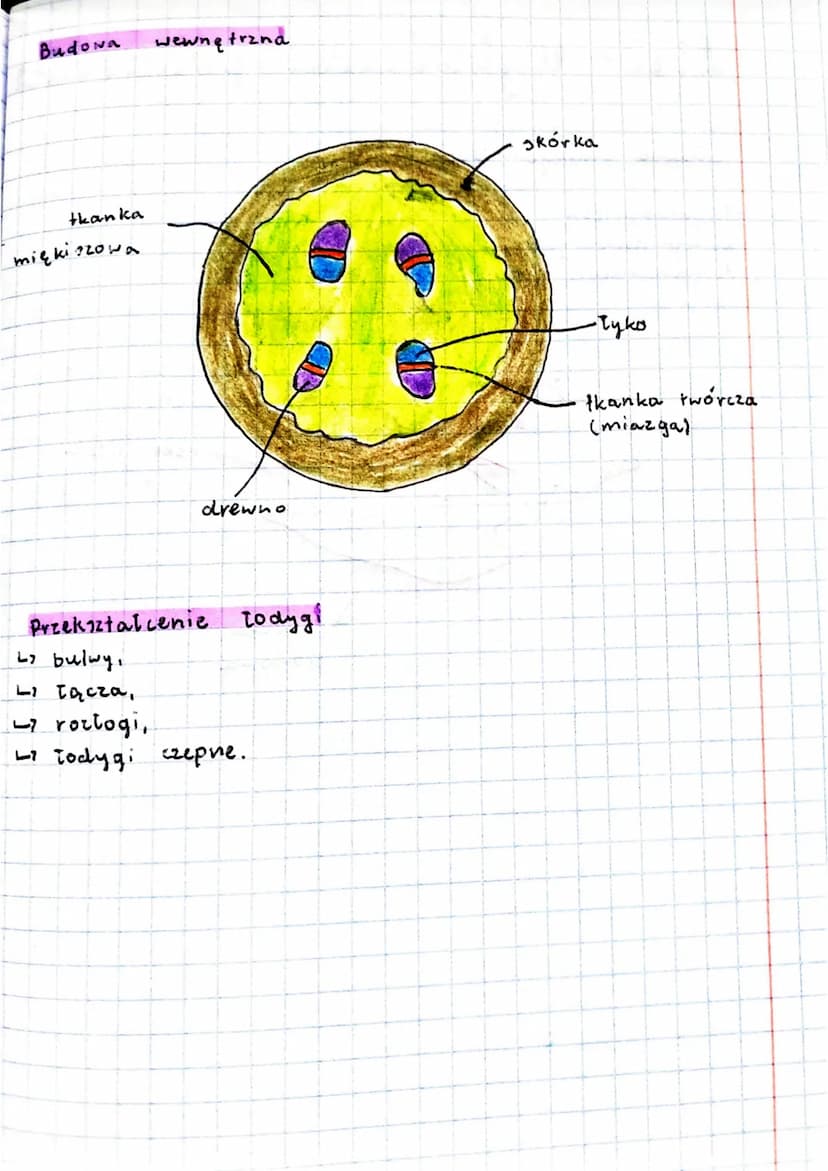 Budowa wewnętrzna
skórka
tkanka
miękiszowa
łyko
tkanka twórcza
(miazga)
drewno
Przekształcenie łodygi
↳ bulwy,
↳ łącza,
↳ rozłogi,
↳ łodygi czepne.